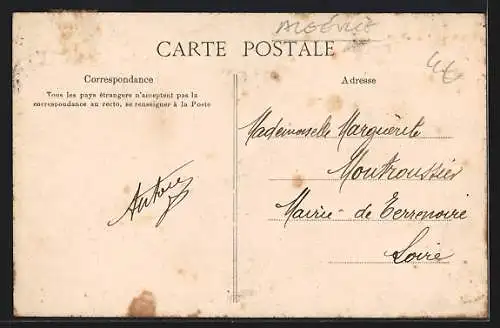 ALGÉRIE
CARTE POSTALE
4€
Correspondance
Tous les pays étrangers n'acceptent pas la
correspondance au recto, se renseigner à la Poste
Adresse
Mademoiselle Marguerite
Montroussier
Mairie - de Terrenoire
Loire
Antoine